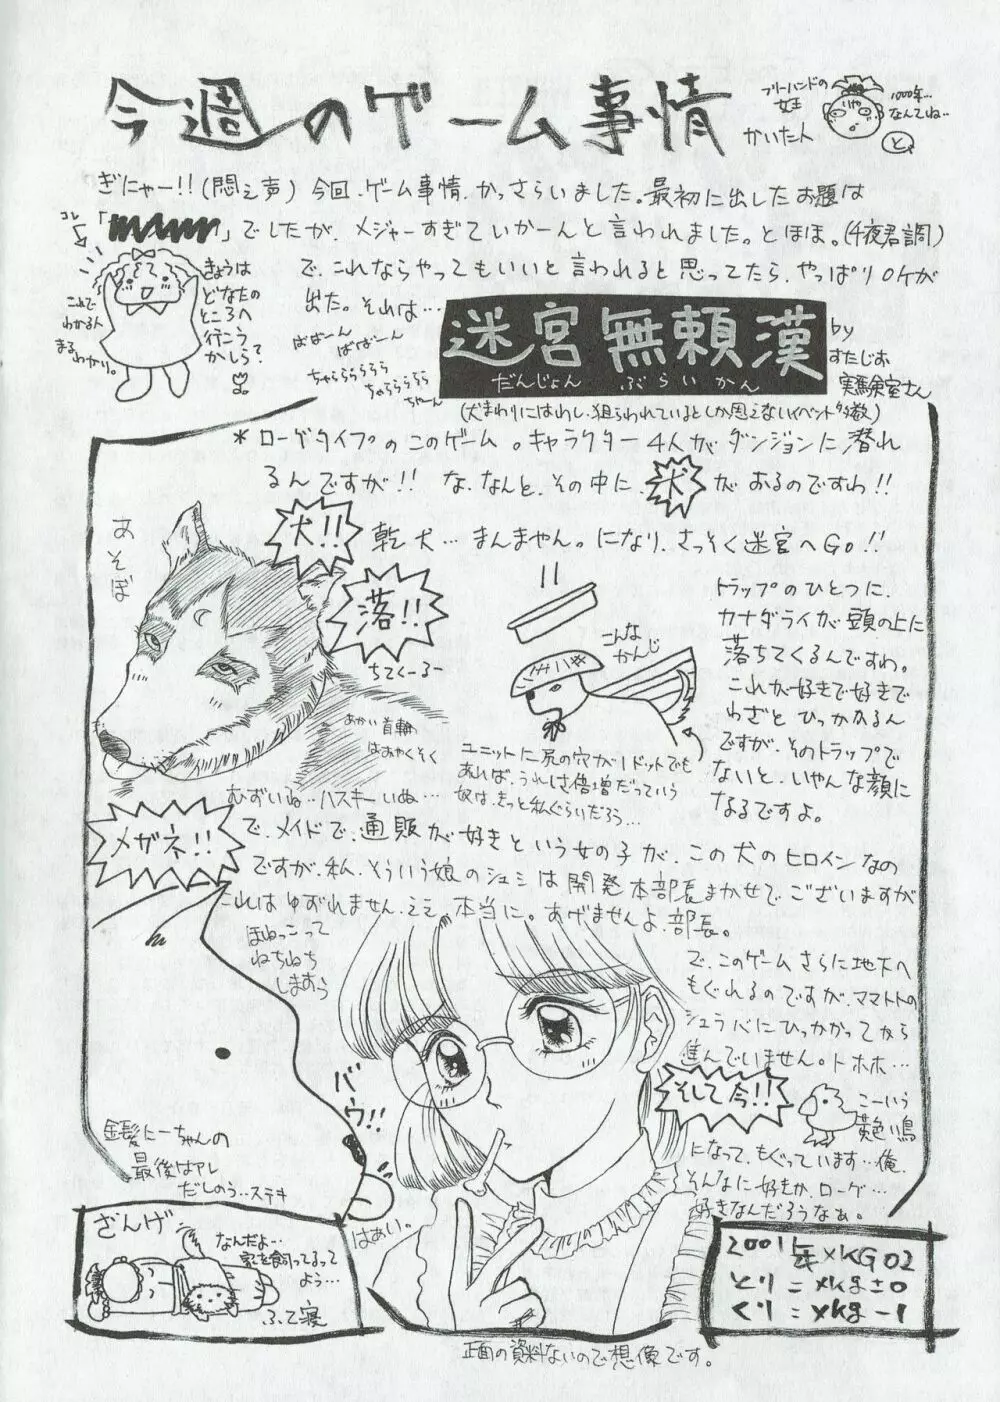 今週のゲーム事情
フリーハンドの
女王
かいた人
いや
1000年…
なんでね…
と
ぎにゃー!!(悶え声) 今回、ゲーム事情、かっさらいました。最初に出したお題は
「 」でしたが、メジャーすぎていかーんと言われました。とほほ。(千夜君調)
で、これならやってもいいと言われると思ってたら、やっぱりOKが
出た。それは…
コレ
これで
わかる人
まる
わかり。
きょうは
どなたの
ところへ
行こう
かしら?
ばばーん
ばばーん
ちゃらららららら
ちゅらららら
ちゃーん
迷宮無頼漢
だんじょん ぶらいかん
by
すたじお
実験室さん
(犬まわりにはわし、狙らわれているとしか思えないイベント多数)
*ローグタイプのこのゲーム。キャラクター4人がダンジョンに潜れ
るんですが!! な、なんと、その中に、犬がおるのですわ!!
犬!! 乾犬…まんまやん。になり、さっそく迷宮へGO!!
あそぼ
落!!
ちてくーるー
こんな
かんじ
トラップのひとつに、
カナダライが頭の上に
落ちてくるんですわ。
これが好きで好きで
わざとひっかかるん
ですが、そのトラップで
ないと、いやんな顔に
なるですよ。
あかい首輪
はおやくそく
ユニットに尻の穴が1ドットでも
あれば、うれしさ倍増だっていう
奴は、きっと私ぐらいだろう…
むずいね…ハスキーいぬ…
メガネ!! で、メイドで、通販が好きという女の子が、この犬のヒロインなの
ですが、私、そういう娘のシュミは開発本部長まかせで、ございますが
これはゆずれません、ええ、本当に。あげませんよ、部長。
ほねっこって
ねちねち
しますぅ
で、このゲームさらに地下へ
もぐれるのですが、ママトトの
シュラバにひっかかってから
進んでいません。トホホ…
そして今!!
こーいう
黄色い鳥
になって、もぐっています…俺、
そんなに好きか、ローグ…
好きなんだろうなぁ。
バウ!!
金髪にーちゃんの
最後はアレ
だしのう…ステキ
はぁい。
ざんげ
なんだよ…
家を飼ってるって
よう…
ふて寝
2001年×KG02
とり=×kg±0
くり=×kg-1
正面の資料ないので想像です。